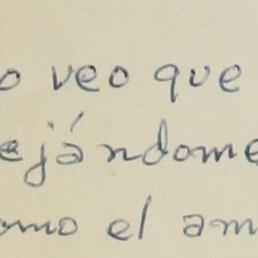 o veo que
ejándome
omo el am